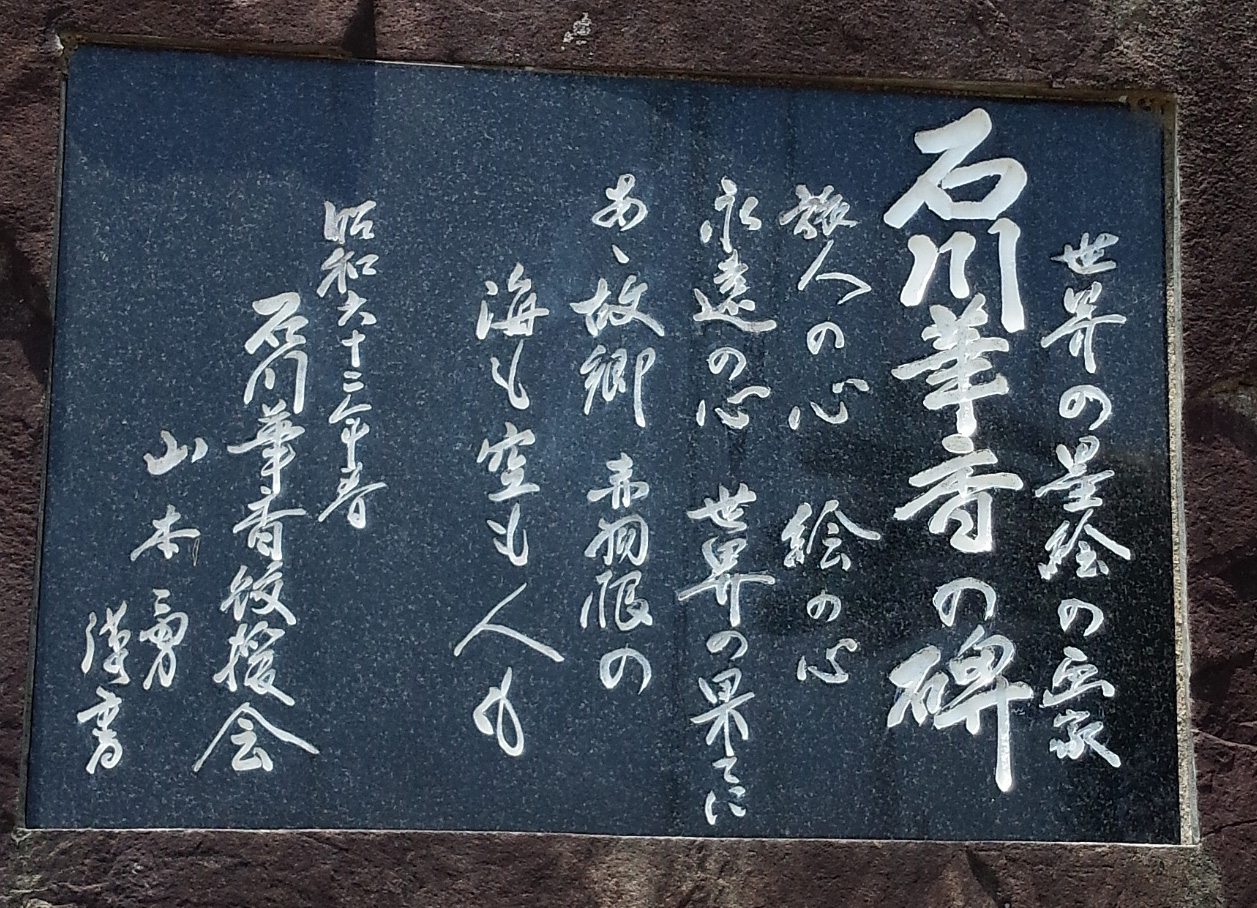 世界の墨絵の画家
石川華香の碑
旅人の心 絵の心
永遠の心 世界の果てに
あゝ故郷 赤羽根の
海も空も人も
昭和六十二年春
石川華香後援会
山本勇 謹書